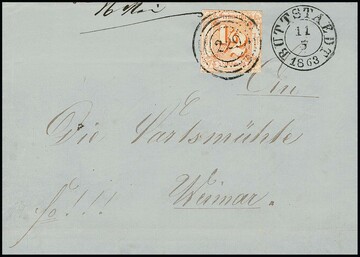 BUTTSTAEDT
11
5
1863
An
Die Vartsmühle
Weimar.
fo!!!